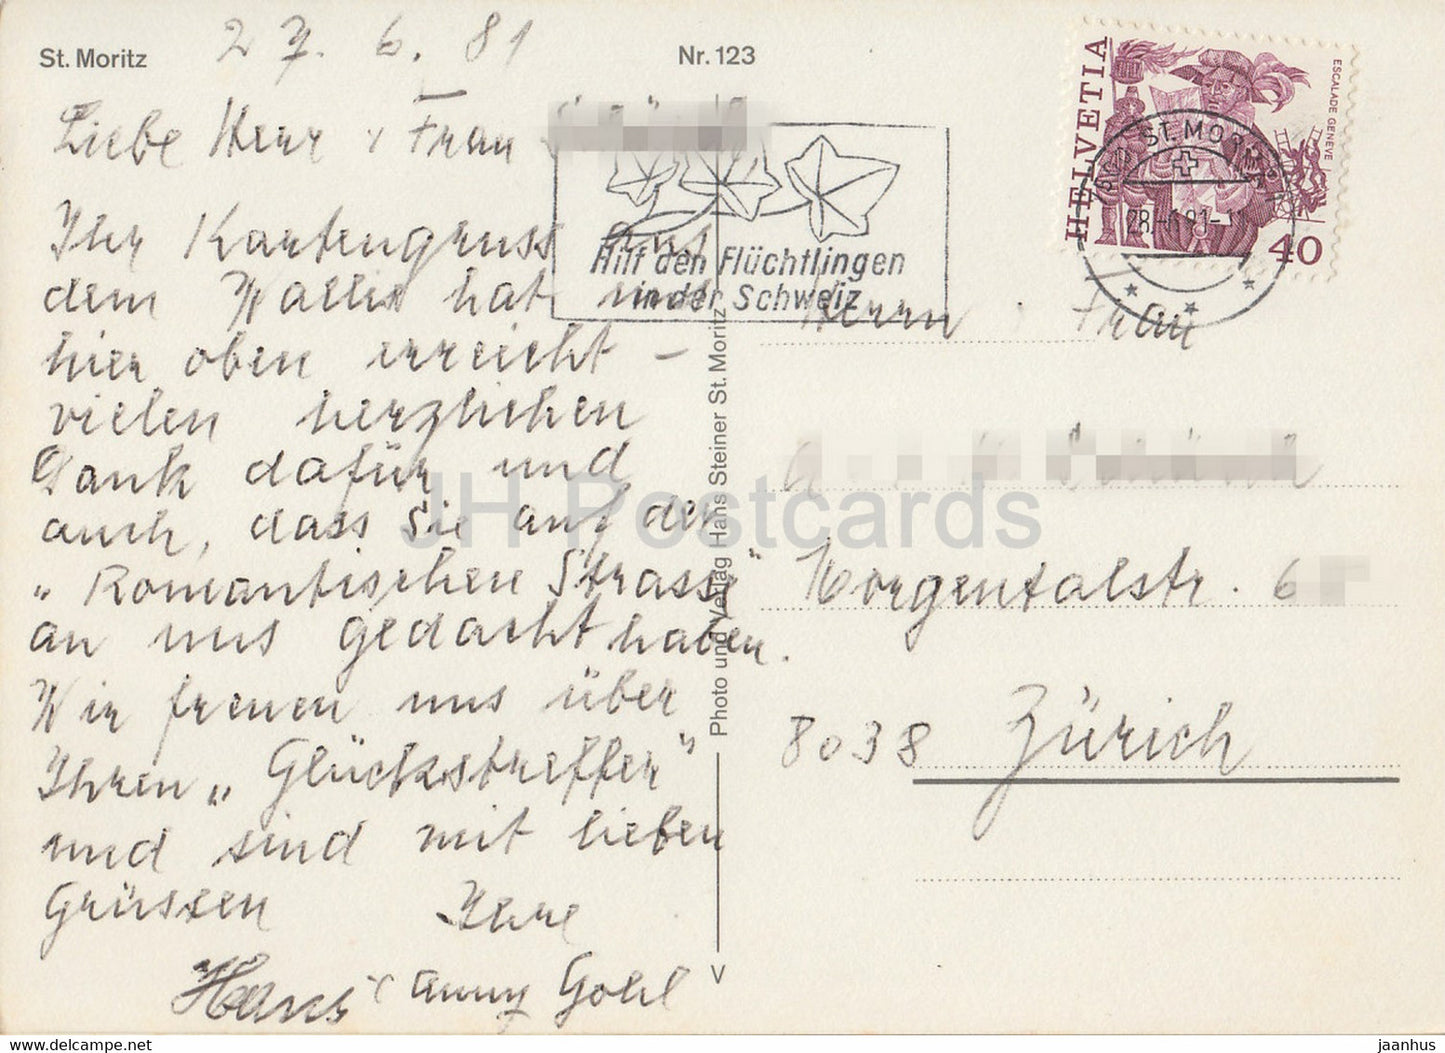 St. Moritz
27. 6. 81
Nr. 123
Liebe Herr + Frau
Ihr Kartengruss aus
dem Wallis hat uns
hier oben erreicht –
vielen herzlichen
Dank dafür und
auch, dass Sie auf der
„Romantischen Strasse"
an uns gedacht haben.
Wir freuen uns über
Ihren „Glückstreffer"
und sind mit lieben
Grüssen Ihre
Hans + Anny Gohl
Photo und Verlag Hans Steiner St. Moritz
V
HELVETIA
ESCALADE GENÈVE
40
ST. MORITZ
28.-6.81-
Hilf den Flüchtlingen
in der Schweiz
Herrn + Frau
Morgentalstr. 6
8038 Zürich
JH Postcards
hippostcard.com
jaanhus